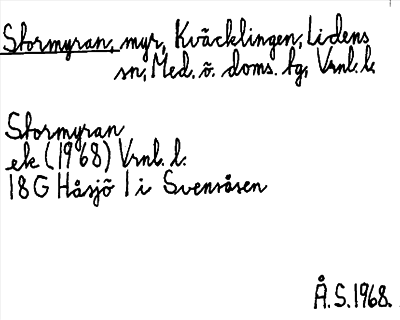 Stormyran, myr, Kväcklingen, Lidens
sn, Med. ö. doms. tg, Vrnl. l.
Stormyran
ek (1968) Vrnl. l.
18G Håsjö 1 i Svensåsen
Å.S.1968.